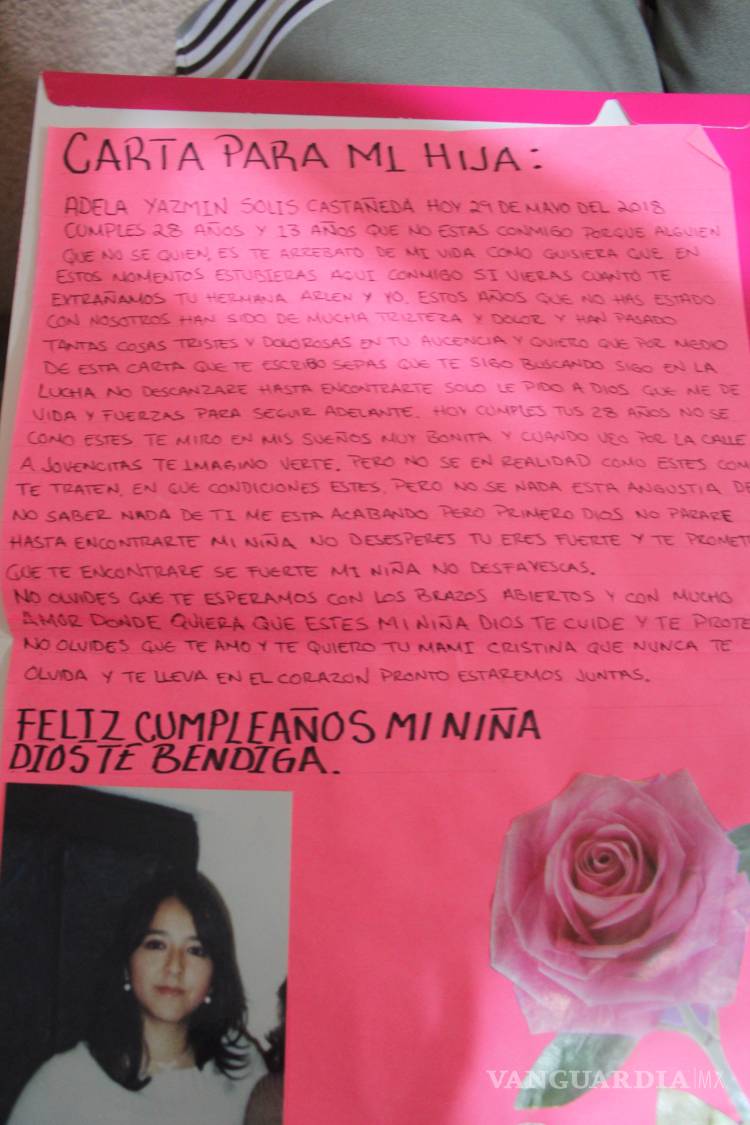 CARTA PARA MI HIJA:
ADELA YAZMIN SOLIS CASTAÑEDA HOY 29 DE MAYO DEL 2018
CUMPLES 28 AÑOS Y 13 AÑOS QUE NO ESTAS CONMIGO PORQUE ALGUIEN
QUE NO SE QUIEN, ES TE ARREBATO DE MI VIDA COMO QUISIERA QUE EN
ESTOS MOMENTOS ESTUBIERAS AQUI CONMIGO SI VIERAS CUANTO TE
EXTRAÑAMOS TU HERMANA ARLEN Y YO. ESTOS AÑOS QUE NO HAS ESTADO
CON NOSOTROS HAN SIDO DE MUCHA TRIZTEZA Y DOLOR Y HAN PASADO
TANTAS COSAS TRISTES Y DOLOROSAS EN TU AUCENCIA Y QUIERO QUE POR MEDIO
DE ESTA CARTA QUE TE ESCRIBO SEPAS QUE TE SIGO BUSCANDO SIGO EN LA
LUCHA NO DESCANZARE HASTA ENCONTRARTE SOLO LE PIDO A DIOS QUE ME DE
VIDA Y FUERZAS PARA SEGUIR ADELANTE. HOY CUMPLES TUS 28 AÑOS NO SE
COMO ESTES TE MIRO EN MIS SUEÑOS MUY BONITA Y CUANDO VEO POR LA CALLE
A JOVENCITAS TE IMAGINO VERTE. PERO NO SE EN REALIDAD COMO ESTES COM
TE TRATEN, EN QUE CONDICIONES ESTES, PERO NO SE NADA ESTA ANGUSTIA DE
NO SABER NADA DE TI ME ESTA ACABANDO PERO PRIMERO DIOS NO PARARE
HASTA ENCONTRARTE MI NIÑA NO DESESPERES TU ERES FUERTE Y TE PROMET
QUE TE ENCONTRARE SE FUERTE MI NIÑA NO DESFAYESCAS.
NO OLVIDES QUE TE ESPERAMOS CON LOS BRAZOS ABIERTOS Y CON MUCHO
AMOR DONDE QUIERA QUE ESTES MI NIÑA DIOS TE CUIDE Y TE PROTE
NO OLVIDES QUE TE AMO Y TE QUIERO TU MAMI CRISTINA QUE NUNCA TE
OLVIDA Y TE LLEVA EN EL CORAZON PRONTO ESTAREMOS JUNTAS.
FELIZ CUMPLEAÑOS MI NIÑA
DIOS TE BENDIGA.
VANGUARDIA|MX